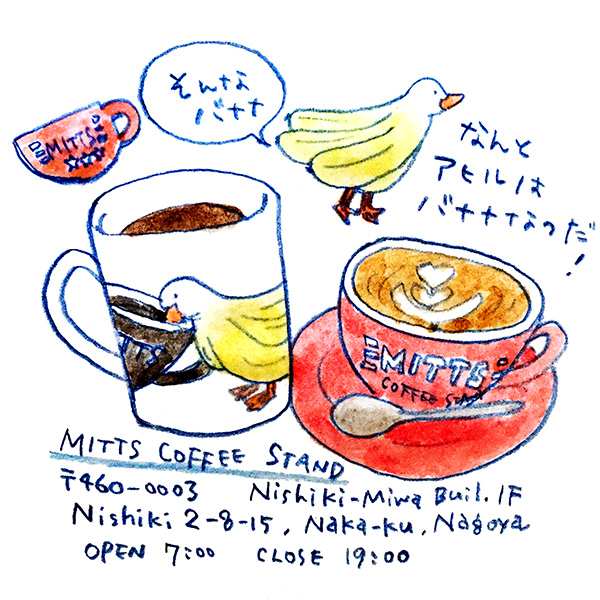 そんな
バナナ
なんと
アヒルは
バナナなのだ!
MITTS
MITTS
MITTS
COFFEE STAND
MITTS COFFEE STAND
〒460-0003 Nishiki-Miwa Buil. 1F
Nishiki 2-8-15, Naka-ku, Nagoya
OPEN 7:00 CLOSE 19:00